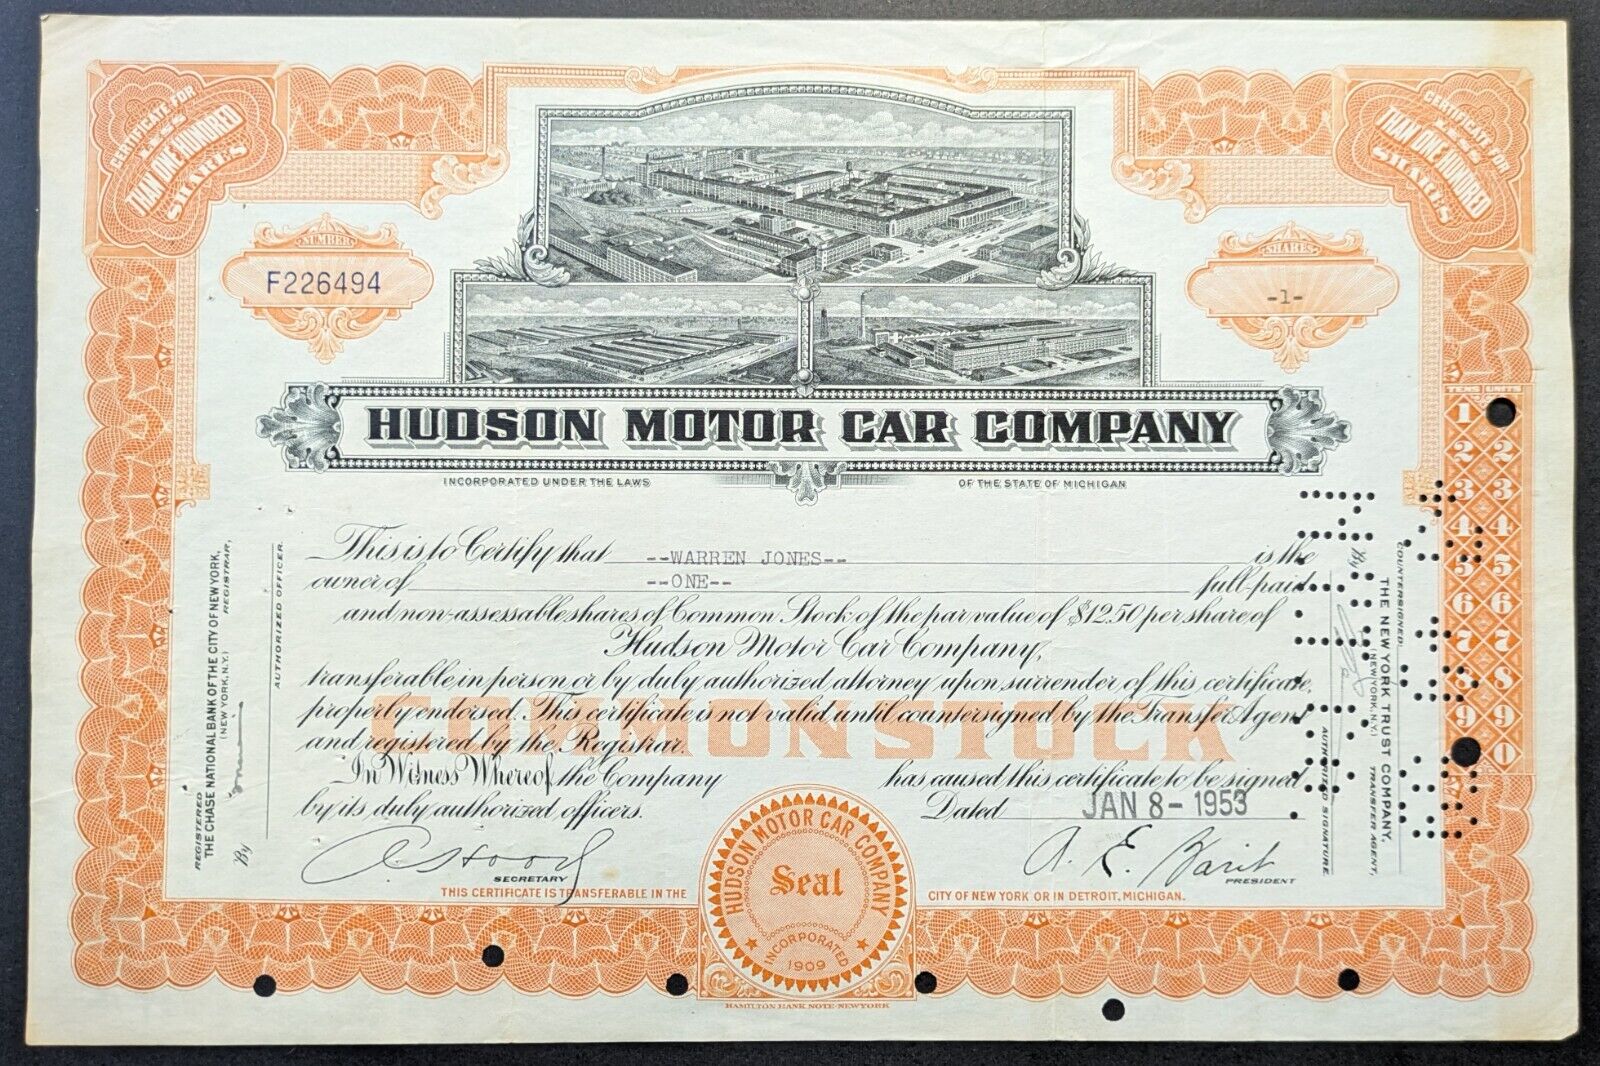 CERTIFICATE FOR
LESS
THAN ONE HUNDRED
SHARES
CERTIFICATE FOR
LESS
THAN ONE HUNDRED
SHARES
NUMBER
F226494
SHARES
-1-
HUDSON MOTOR CAR COMPANY
INCORPORATED UNDER THE LAWS OF THE STATE OF MICHIGAN
This is to Certify that --WARREN JONES-- is the
owner of --ONE-- full-paid
and non-assessable shares of Common Stock of the par value of $12.50 per share of
Hudson Motor Car Company,
transferable in person or by duly authorized attorney upon surrender of this certificate,
properly endorsed. This certificate is not valid until countersigned by the Transfer Agent
and registered by the Registrar.
COMMON STOCK
In Witness Whereof the Company has caused this certificate to be signed
by its duly authorized officers. Dated JAN 8 - 1953
SECRETARY
A. E. Barit
PRESIDENT
THIS CERTIFICATE IS TRANSFERABLE IN THE CITY OF NEW YORK OR IN DETROIT, MICHIGAN.
HUDSON MOTOR CAR COMPANY
Seal
INCORPORATED
1909
HAMILTON BANK NOTE-NEW YORK
REGISTERED
THE CHASE NATIONAL BANK OF THE CITY OF NEW YORK,
(NEW YORK, N.Y.) REGISTRAR,
By
AUTHORIZED OFFICER.
COUNTERSIGNED:
THE NEW YORK TRUST COMPANY,
(NEW YORK, N.Y.) TRANSFER AGENT,
By
AUTHORIZED SIGNATURE.
TENS UNITS
1
2 2
3 3
4 4
5 5
6 6
7 7
8 8
9 9
0 0